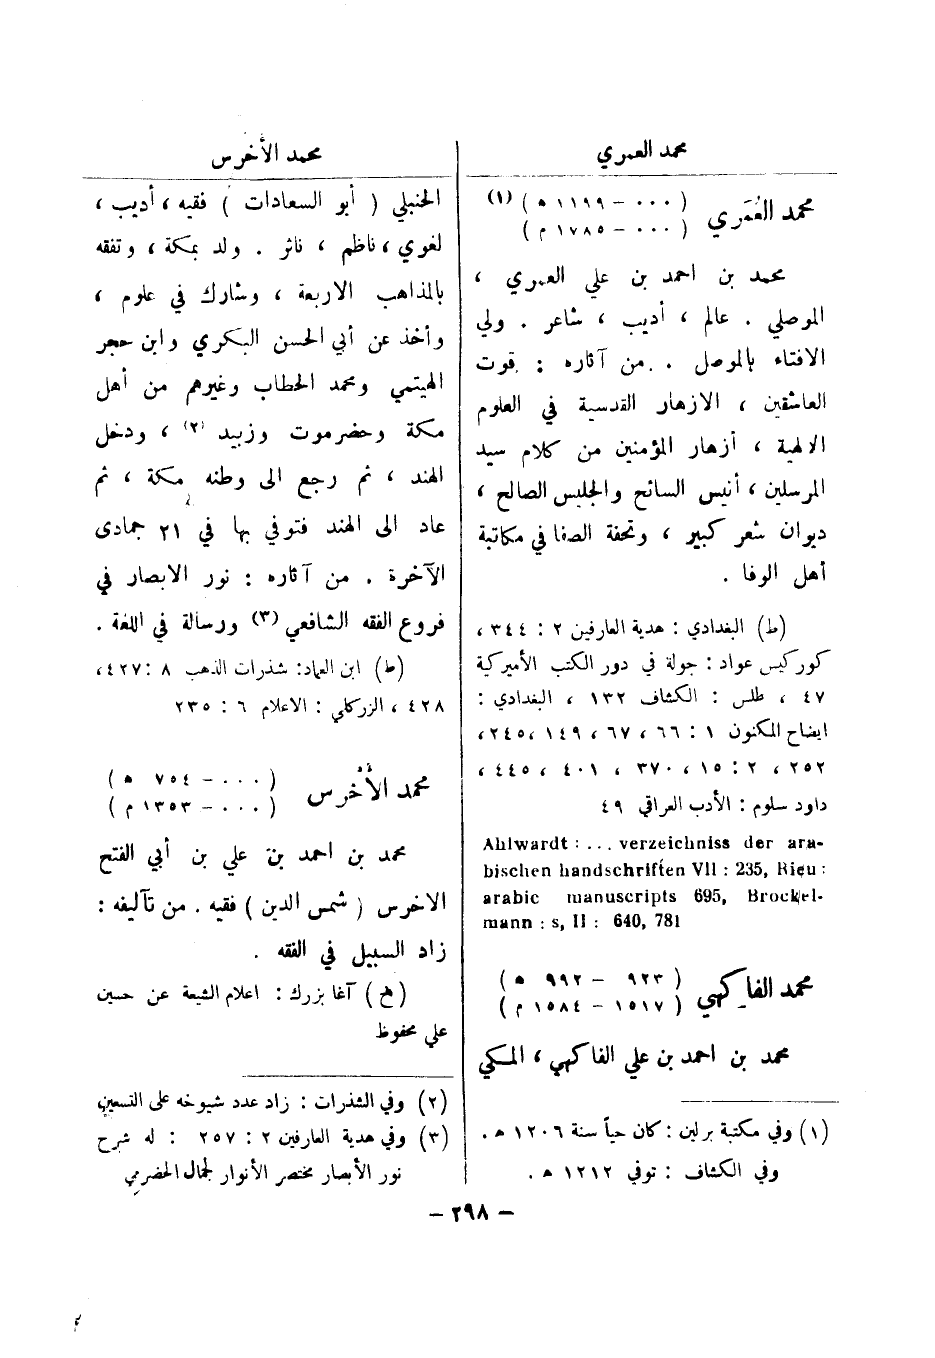 محمد العمري
محمد العُمَري ( ٠٠٠ – ١١٩٩ ه ) (١)
( ٠٠٠ – ١٧٨٥ م )
محمد بن احمد بن علي العمري ،
الموصلي . عالم ، أديب ، شاعر . ولي
الافتاء بالموصل . من آثاره : قوت
العاشقين ، الازهار القدسية في العلوم
الالهية ، أزهار المؤمنين من كلام سيد
المرسلين ، أنيس السائح والجليس الصالح ،
ديوان شعر كبير ، وتحفة الصفا في مكاتبة
أهل الوفا .
(ط) البغدادي : هدية العارفين ٢ : ٣٤٤ ،
كوركيس عواد : جولة في دور الكتب الأميركية
٤٧ ، طلس : الكشاف ١٣٢ ، البغدادي :
ايضاح المكنون ١ : ٦٦ ، ٦٧ ، ١٤٩ ، ٢٤٥ ،
٢٥٢ ، ٢ : ١٥ ، ٣٧٠ ، ٤٠١ ، ٤٤٥ ،
داود سلوم : الأدب العراقي ٤٩
Ahlwardt : ... verzeichniss der ara-
bischen handschriften VII : 235, Rieu :
arabic manuscripts 695, Brockel-
mann : s, II : 640, 781
محمد الفاكهي ( ٩٢٣ – ٩٩٢ ه )
( ١٥١٧ – ١٥٨٤ م )
محمد بن احمد بن علي الفاكهي ، المكي
(١) وفي مكتبة برلين : كان حياً سنة ١٢٠٦ ه .
وفي الكشاف : توفي ١٢١٢ ه .
محمد الأخرس
الحنبلي ( أبو السعادات ) فقيه ، أديب ،
لغوي ، ناظم ، ناثر . ولد بمكة ، وتفقه
بالمذاهب الاربعة ، وشارك في علوم ،
وأخذ عن أبي الحسن البكري وابن حجر
الهيتمي ومحمد الحطاب وغيرهم من أهل
مكة وحضرموت وزبيد (٢) ، ودخل
الهند ، ثم رجع الى وطنه مكة ، ثم
عاد الى الهند فتوفي بها في ٢١ جمادى
الآخرة . من آثاره : نور الابصار في
فروع الفقه الشافعي (٣) ورسالة في اللغة .
(ط) ابن العماد : شذرات الذهب ٨ : ٤٢٧ ،
٤٢٨ ، الزركلي : الاعلام ٦ : ٢٣٥
محمد الأخرس ( ٠٠٠ – ٧٥٤ ه )
( ٠٠٠ – ١٣٥٣ م )
محمد بن احمد بن علي بن أبي الفتح
الاخرس ( شمس الدين ) فقيه . من تآليفه :
زاد السبيل في الفقه .
(خ) آغا بزرك : اعلام الشيعة عن حسين
علي محفوظ
(٢) وفي الشذرات : زاد عدد شيوخه على التسعين
(٣) وفي هدية العارفين ٢ : ٢٥٧ : له شرح
نور الأبصار مختصر الأنوار لجمال الحضرمي
– ٢٩٨ –